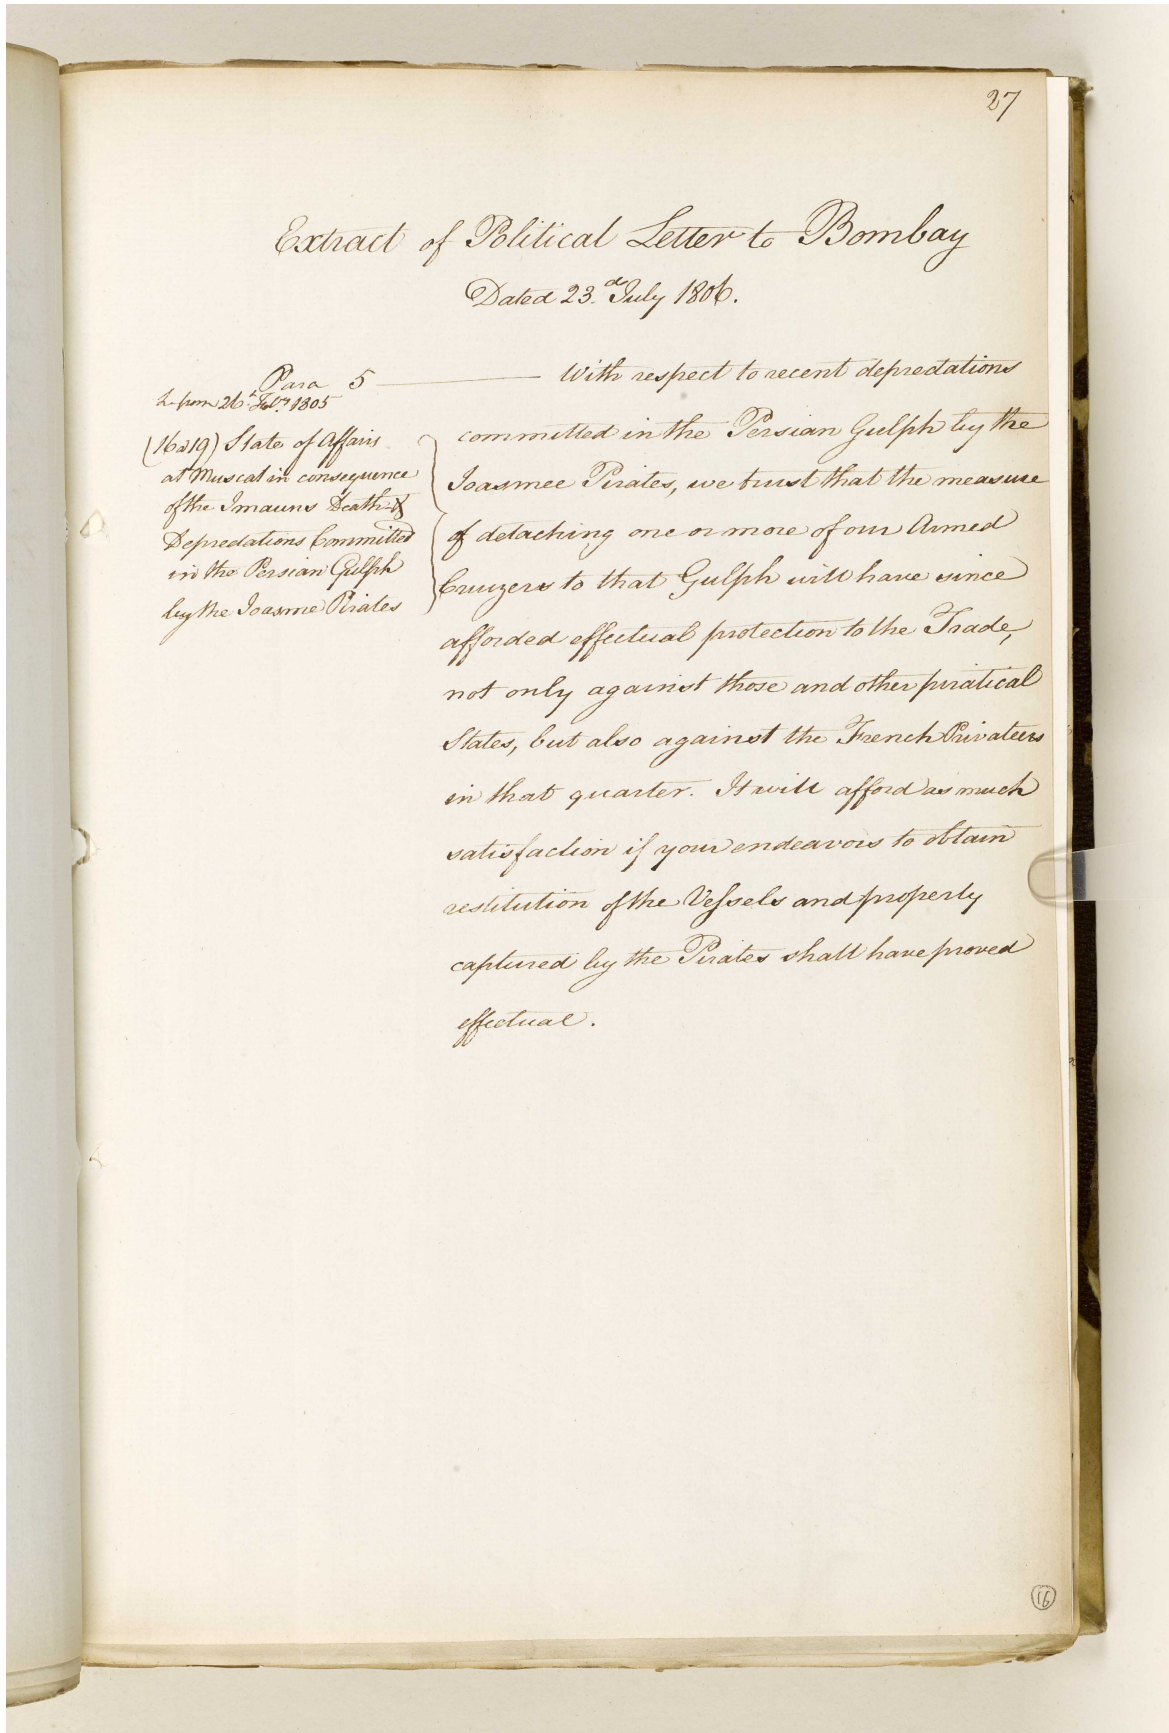 27
Extract of Political Letter to Bombay
Dated 23.d July 1806.
Para 5 With respect to recent depredations
L. from 26th Feby. 1805
(16 a 19) State of Affairs
at Muscat in consequence
of the Imauns Death &
Depredations Committed
in the Persian Gulph
by the Joasme Pirates
committed in the Persian Gulph by the
Joasmee Pirates, we trust that the measure
of detaching one or more of our Armed
Cruizers to that Gulph will have since
afforded effectual protection to the Trade,
not only against those and other piratical
States, but also against the French Privateers
in that quarter. It will afford as much
satisfaction if your endeavors to obtain
restitution of the Vessels and property
captured by the Pirates shall have proved
effectual.
16